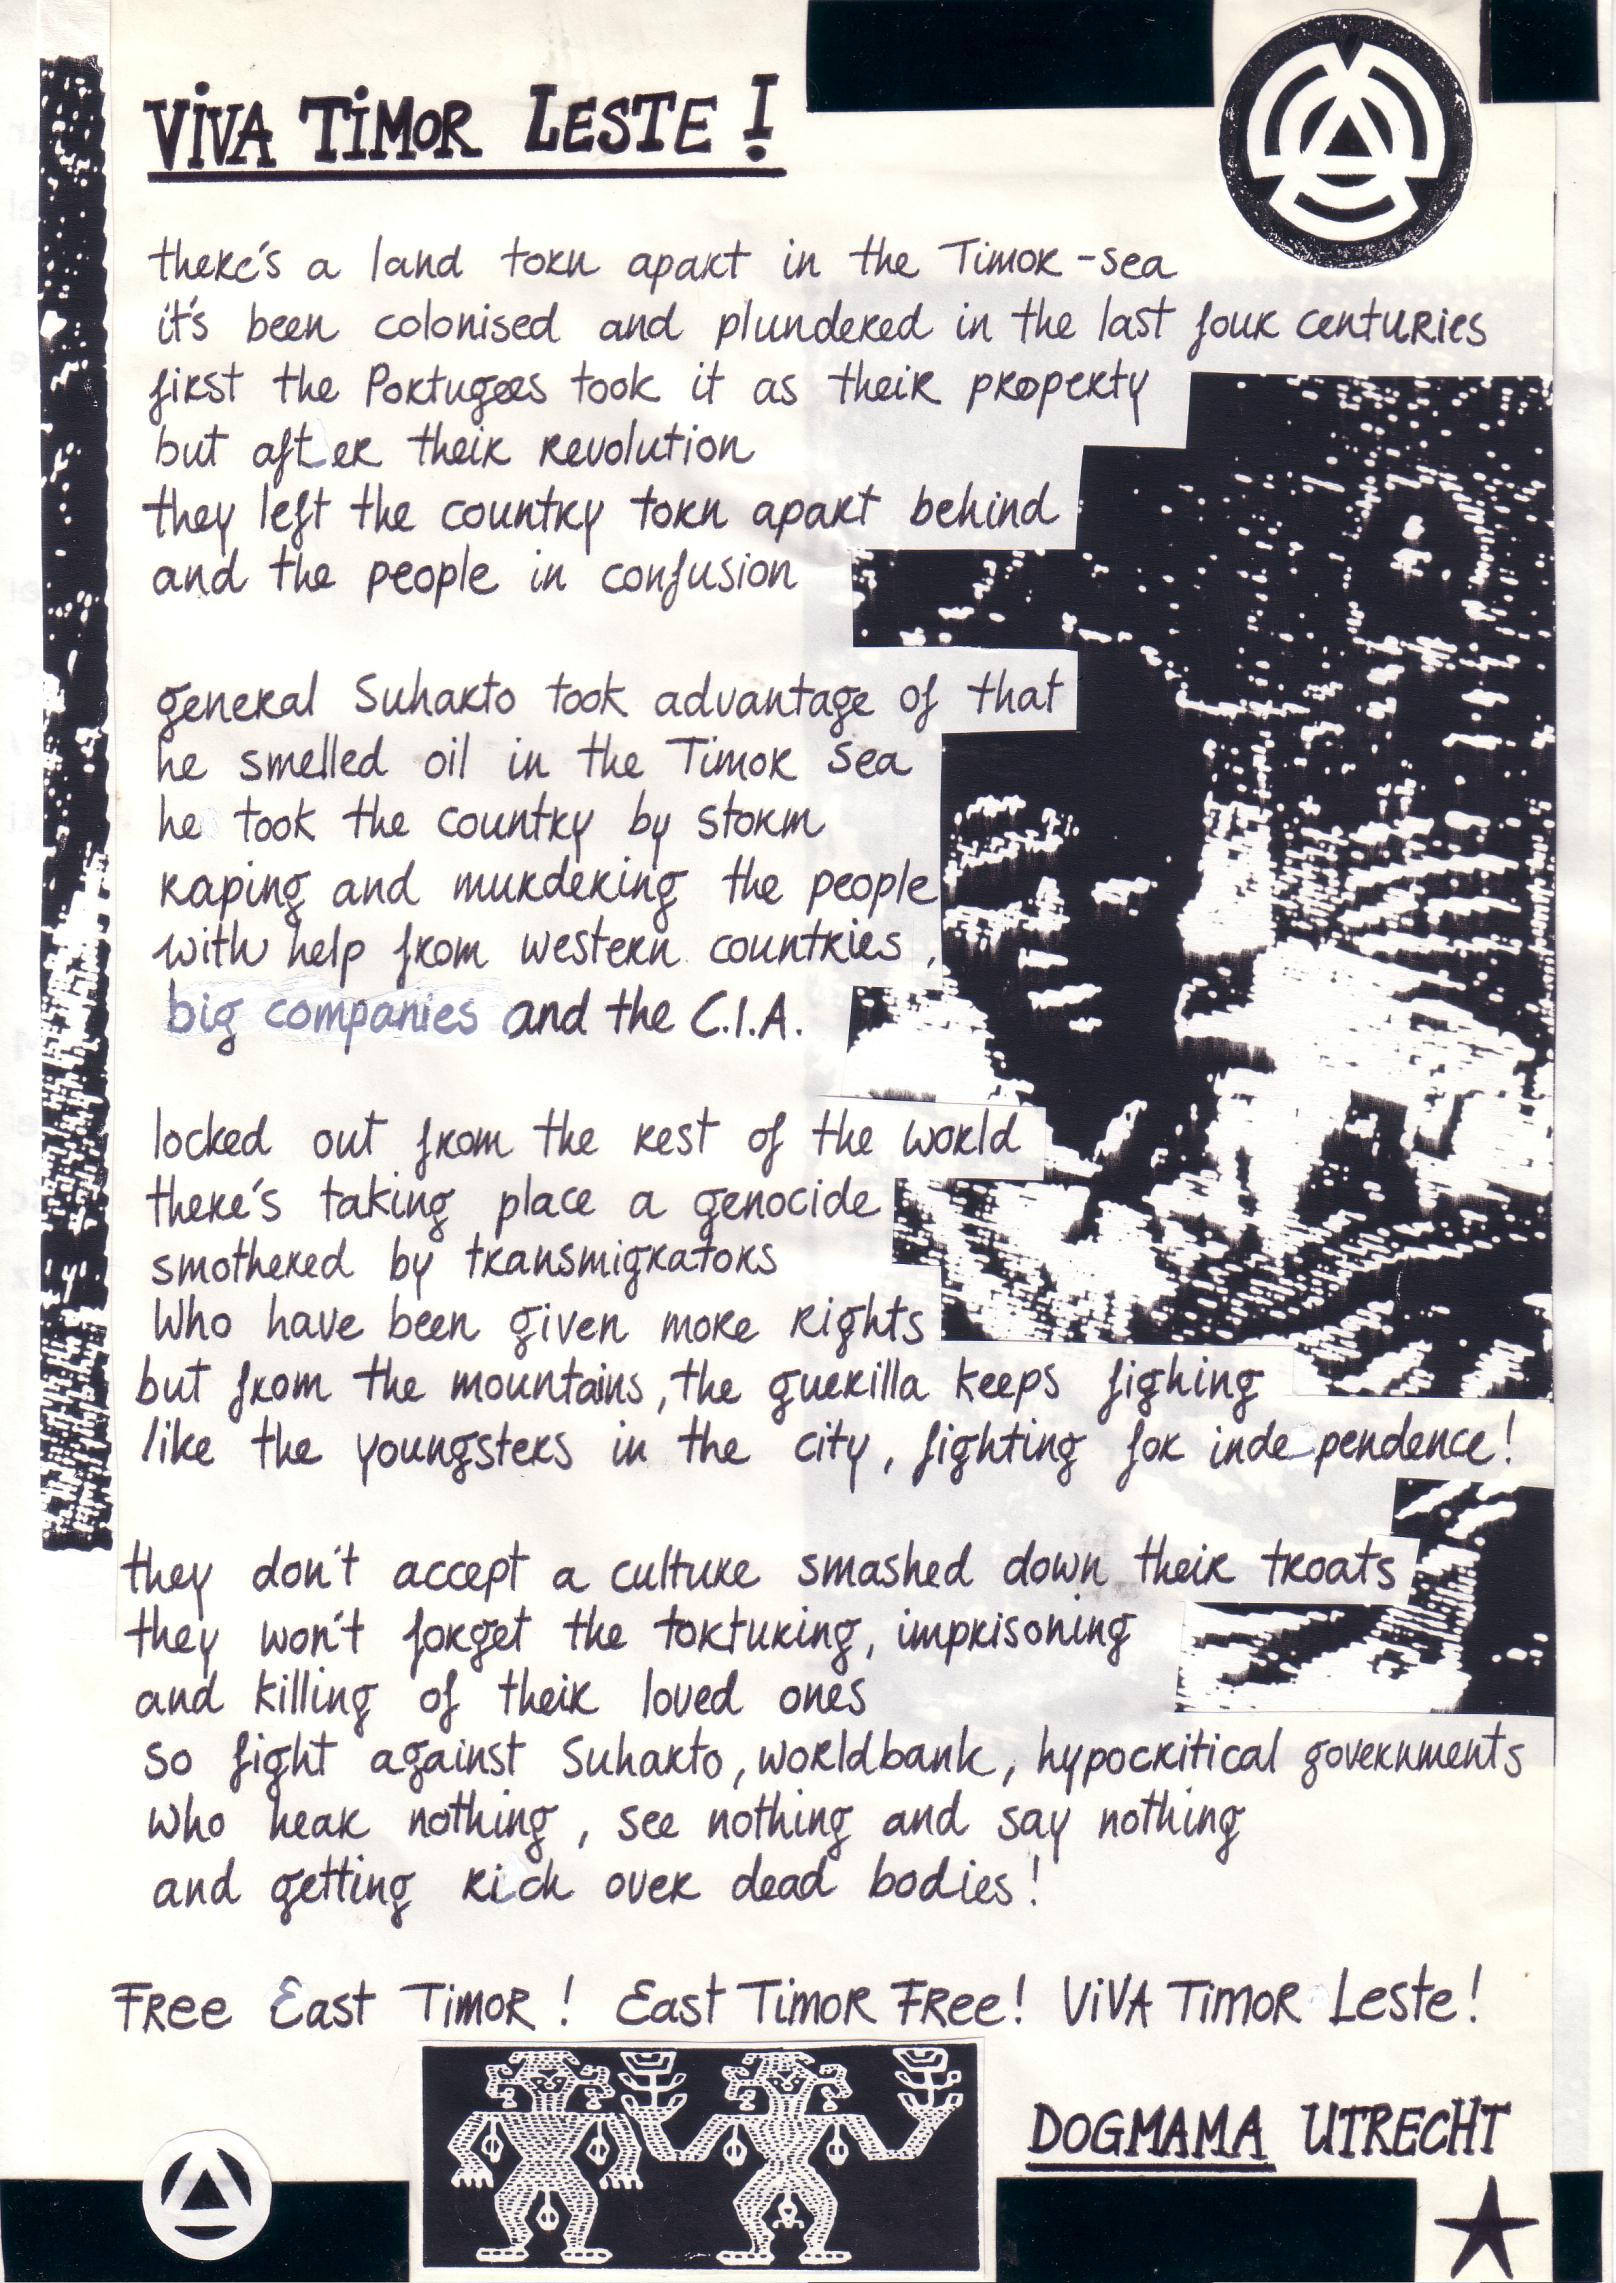 ViVA TiMOR LESTE !
there's a land torn apart in the Timor-sea
it's been colonised and plundered in the last four centuries
first the Portugees took it as their property
but after their revolution
they left the country torn apart behind
and the people in confusion
general Suharto took advantage of that
he smelled oil in the Timor sea
he took the country by storm
raping and murdering the people
with help from western countries,
big companies and the C.I.A.
locked out from the rest of the world
there's taking place a genocide
smothered by transmigrators
Who have been given more rights
but from the mountains, the guerilla keeps fighing
like the youngsters in the city, fighting for inde pendence!
they don't accept a culture smashed down their troats
they won't forget the torturing, imprisoning
and killing of their loved ones
so fight against Suharto, worldbank, hypocritical governments
who hear nothing, see nothing and say nothing
and getting rich over dead bodies!
FRee East TiMOR! East TiMOR FRee! ViVA TiMOR Leste!
DOGMAMA UTRECHT